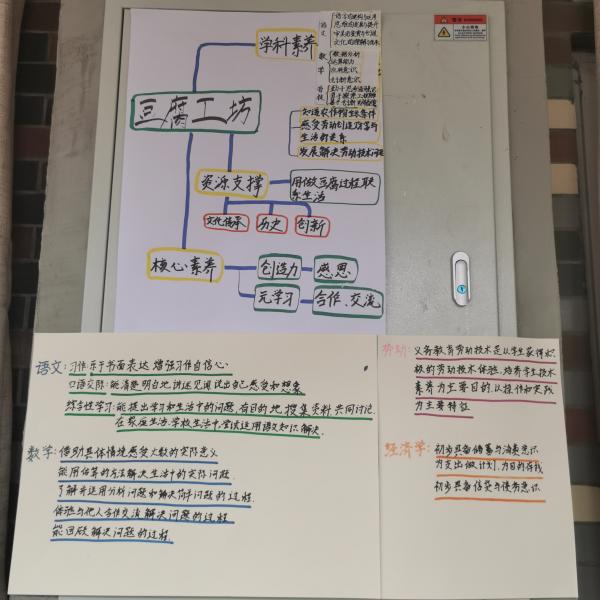 学科素养
语文
数学
数据分析
运算能力
应用意识
创新意识
豆腐工坊
知道农作物生长条件
感受劳动创造财富与
生活的关系
发展解决劳动技术问题
资源支撑
用做豆腐过程联
系生活
文化传承
历史
创新
核心素养
创造力
感恩
元学习
合作、交流
语文:习作:乐于书面表达 增强习作自信心
口语交际:能清楚明白地讲述见闻说出自己感受和想象
综合性学习:能提出学习和生活中的问题,有目的地搜集资料共同讨论.
在家庭生活学校生活中,尝试运用语文知识解决.
数学:借助具体情境感受大数的实际意义
能用估算的方法解决生活中的实际问题.
了解并运用分析问题和解决简单问题的过程.
体验与他人合作交流解决问题的过程
能回顾解决问题的过程.
劳动:义务教育劳动技术是以学生获得积
极的劳动技术体验,培养学生技术
素养为主要目的,以操作和实践
为主要特征
经济学:初步具备储蓄与消费意识
为支出做计划,为目的存钱
初步具备信贷与债务意识